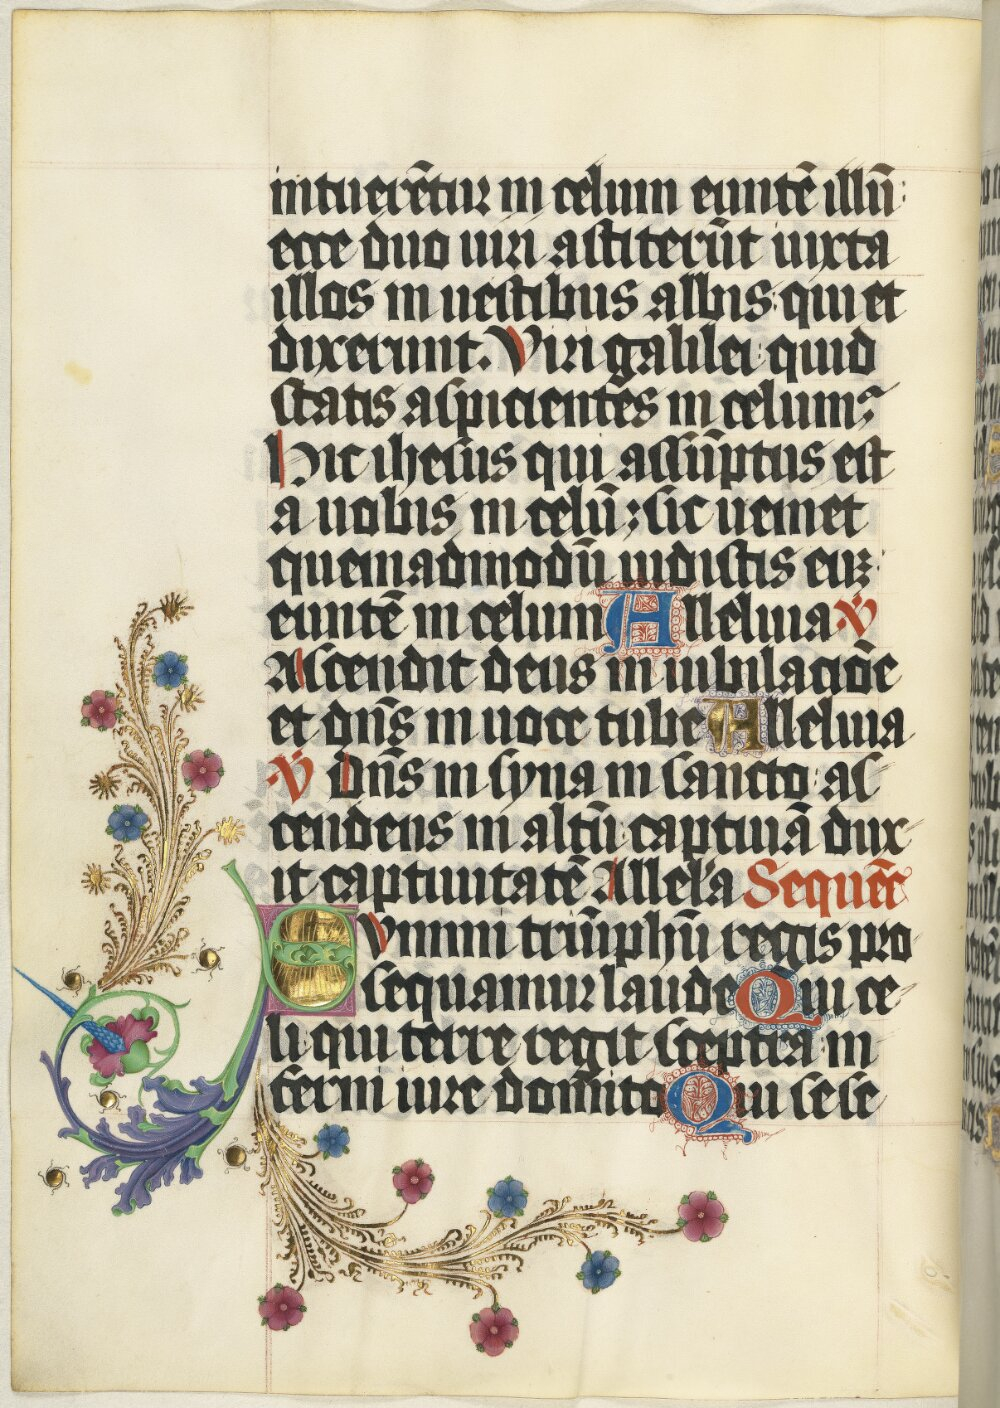 intuerēt̄ur in celum euntē illū:
ecce duo uiri astiterūt iuxta
illos in uestibus albis: qui et
dixerunt. Viri galilei: quid
statis aspicientes in celum?
Hic ihesus qui assūptus est
a uobis in celū: sic ueniet
quemadmodū uidistis euʒ
euntē in celum Alleluia ℣
Ascendit deus in iubilacioē
et dn̄s in uoce tube Alleluia
℣ Dn̄s in syna in sancto: as
cendens in altū captiuā dux
it captiuitatē Allel'a Sequēc̄
Summi triūphū regis pro
sequamur laude Qui ce
li qui terre regit sceptra in
ferni iure domito Qui sese